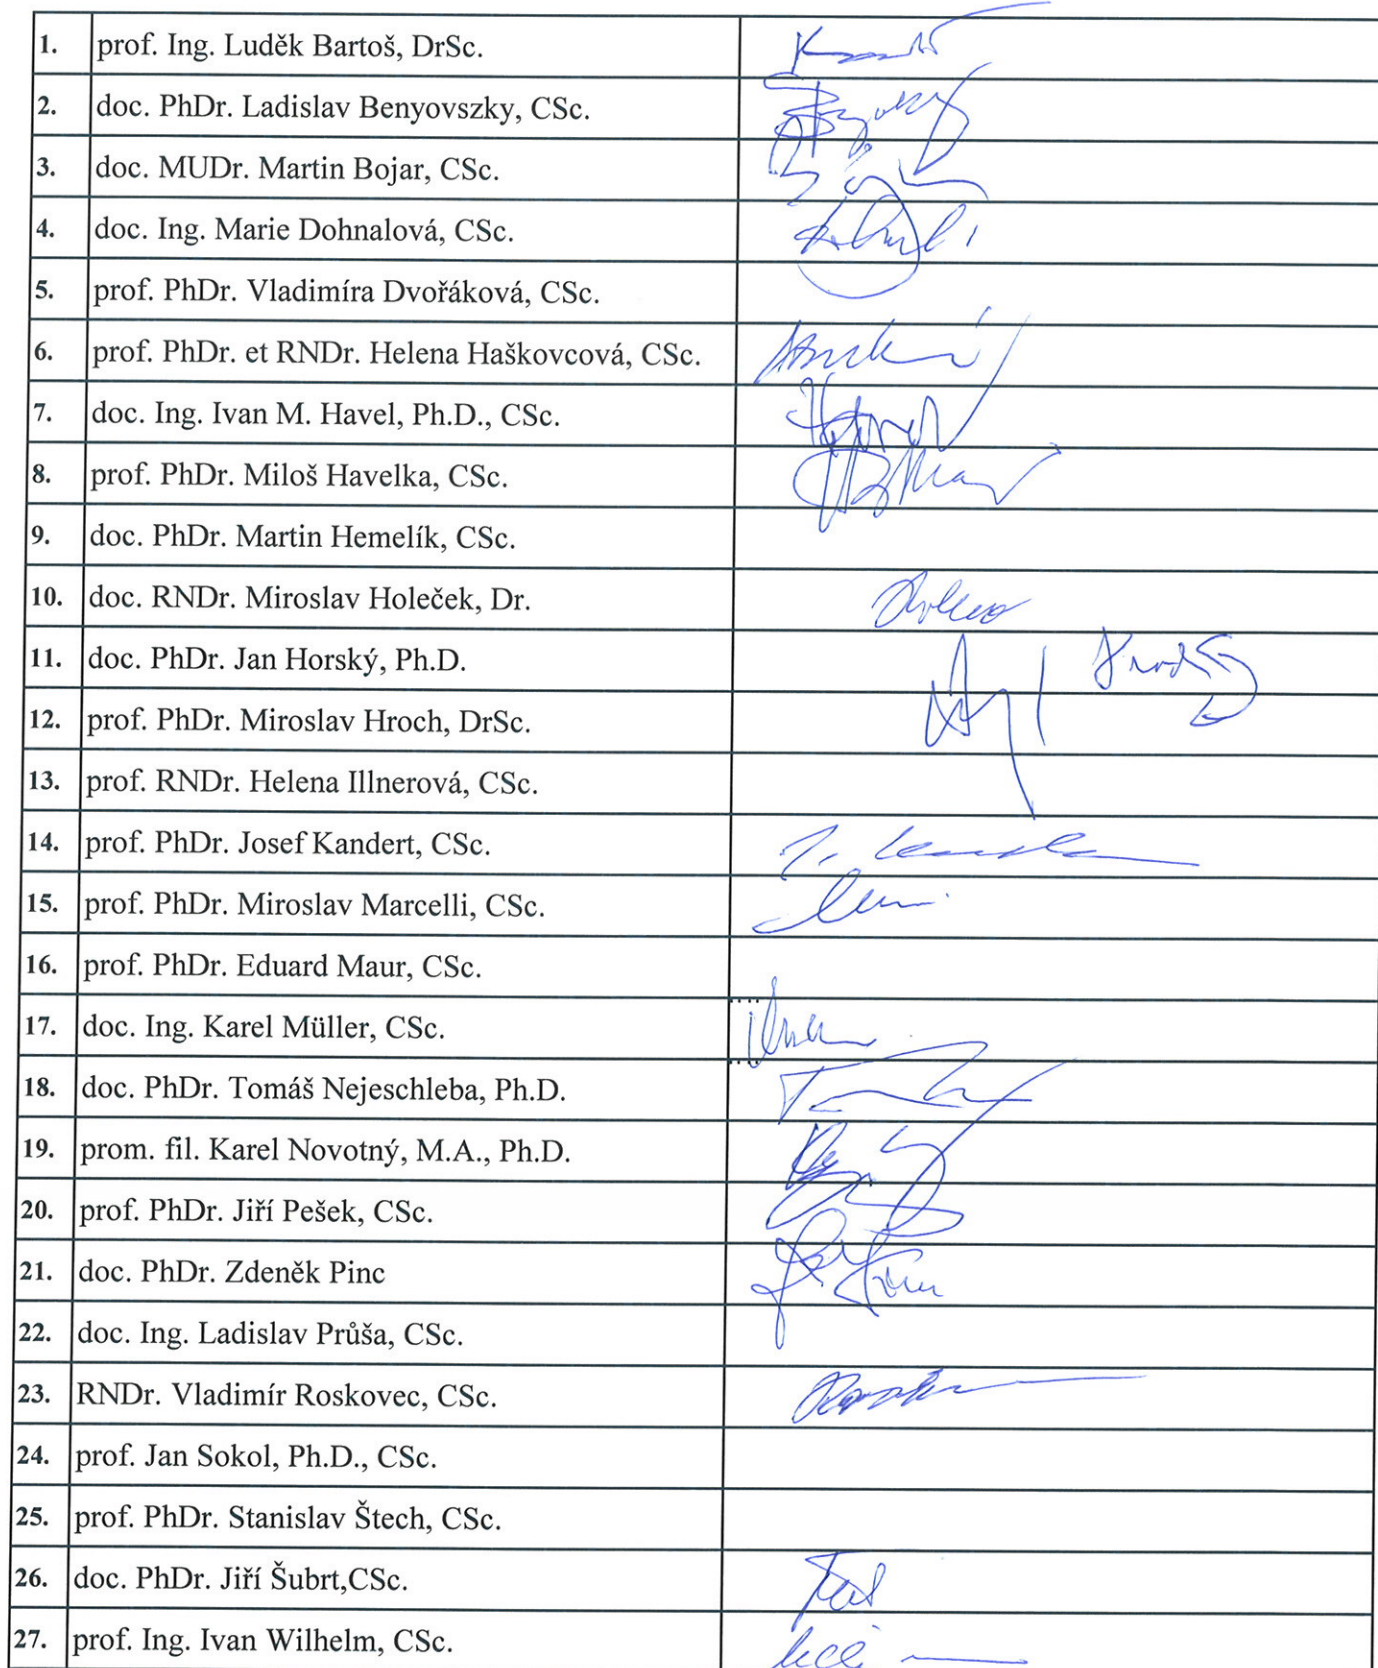 1. prof. Ing. Luděk Bartoš, DrSc.
2. doc. PhDr. Ladislav Benyovszky, CSc.
3. doc. MUDr. Martin Bojar, CSc.
4. doc. Ing. Marie Dohnalová, CSc.
5. prof. PhDr. Vladimíra Dvořáková, CSc.
6. prof. PhDr. et RNDr. Helena Haškovcová, CSc.
7. doc. Ing. Ivan M. Havel, Ph.D., CSc.
8. prof. PhDr. Miloš Havelka, CSc.
9. doc. PhDr. Martin Hemelík, CSc.
10. doc. RNDr. Miroslav Holeček, Dr.
11. doc. PhDr. Jan Horský, Ph.D.
12. prof. PhDr. Miroslav Hroch, DrSc.
13. prof. RNDr. Helena Illnerová, CSc.
14. prof. PhDr. Josef Kandert, CSc.
15. prof. PhDr. Miroslav Marcelli, CSc.
16. prof. PhDr. Eduard Maur, CSc.
17. doc. Ing. Karel Müller, CSc.
18. doc. PhDr. Tomáš Nejeschleba, Ph.D.
19. prom. fil. Karel Novotný, M.A., Ph.D.
20. prof. PhDr. Jiří Pešek, CSc.
21. doc. PhDr. Zdeněk Pinc
22. doc. Ing. Ladislav Průša, CSc.
23. RNDr. Vladimír Roskovec, CSc.
24. prof. Jan Sokol, Ph.D., CSc.
25. prof. PhDr. Stanislav Štech, CSc.
26. doc. PhDr. Jiří Šubrt,CSc.
27. prof. Ing. Ivan Wilhelm, CSc.